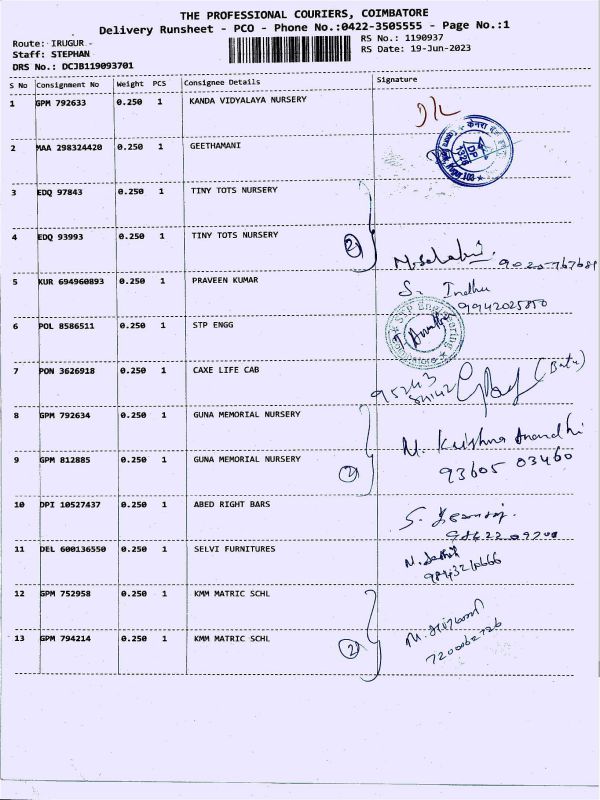 THE PROFESSIONAL COURIERS, COIMBATORE
Delivery Runsheet - PCO - Phone No.:0422-3505555 - Page No.:1
Route: IRUGUR - RS No.: 1190937
Staff: STEPHAN RS Date: 19-Jun-2023
DRS No.: DCJB119093701
S No Consignment No Weight PCS Consignee Details Signature
1 GPM 792633 0.250 1 KANDA VIDYALAYA NURSERY
2 MAA 298324420 0.250 1 GEETHAMANI
3 EDQ 97843 0.250 1 TINY TOTS NURSERY
4 EDQ 93993 0.250 1 TINY TOTS NURSERY 2
5 KUR 694960893 0.250 1 PRAVEEN KUMAR S. Indhu
9942025850
6 POL 8586511 0.250 1 STP ENGG STP Engineering
7 PON 3626918 0.250 1 CAXE LIFE CAB 95243
8 GPM 792634 0.250 1 GUNA MEMORIAL NURSERY M. Krishna Anandhi
93605 03460
9 GPM 812885 0.250 1 GUNA MEMORIAL NURSERY 2
10 DPI 10527437 0.250 1 ABED RIGHT BARS
11 DEL 600136550 0.250 1 SELVI FURNITURES
12 GPM 752958 0.250 1 KMM MATRIC SCHL
13 GPM 794214 0.250 1 KMM MATRIC SCHL 2
7200162726